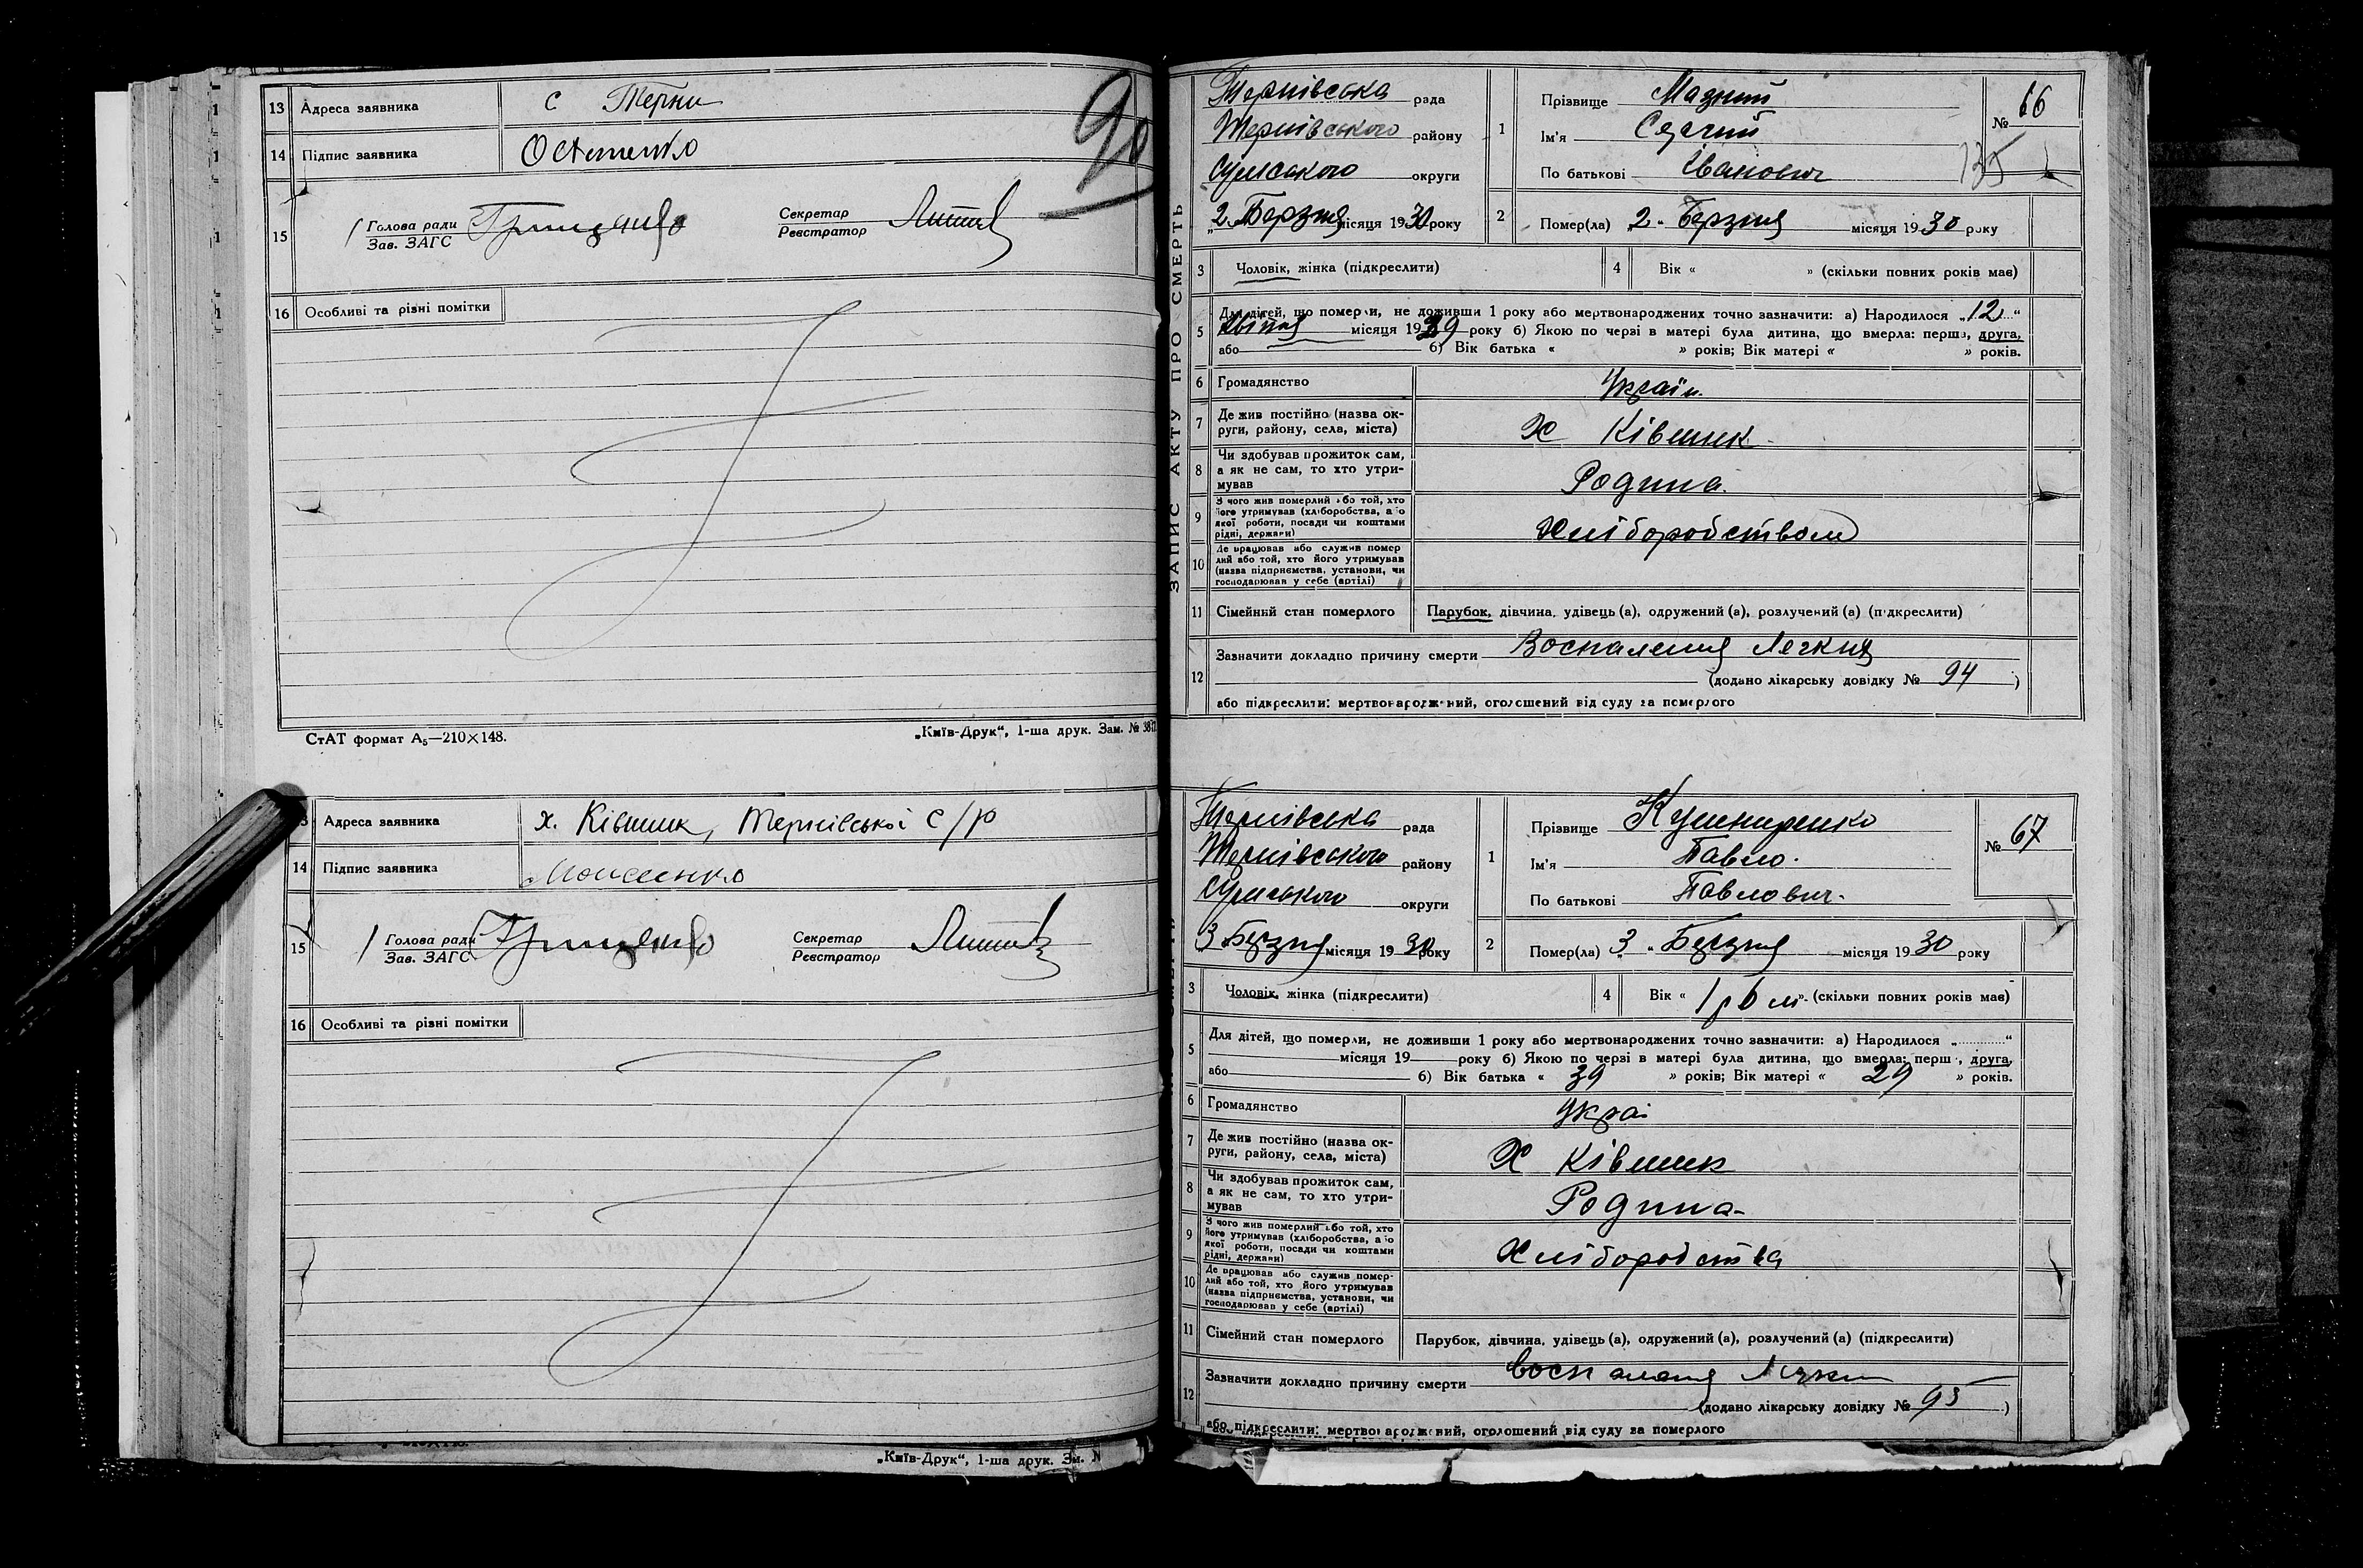 13 Адреса заявника с Терни
14 Підпис заявника Остепенко
90
15 Голова ради
Зав. ЗАГС Грищенко Секретар
Реєстратор
16 Особливі та різні помітки
СтАТ формат А₅—210×148. „Київ-Друк“, 1-ша друк. Зам. №
Адреса заявника х. Ківшик, Тернівської с/р
14 Підпис заявника Моисенко
15 Голова ради
Зав. ЗАГС Грищенко Секретар
Реєстратор
16 Особливі та різні помітки
„Київ-Друк“, 1-ша друк. Зм. N
ЗАПИС АКТУ ПРО СМЕРТЬ
Тернівська рада
Тернівського району
Сумського округи
„2 Березня місяця 1930 року
1 Прізвище Мазний
Ім'я
По батькові Іванович
№ 66
135
2 Помер(ла) „2“ Березня місяця 1930 року
3 Чоловік, жінка (підкреслити) 4 Вік « » (скільки повних років має)
5 Для дітей, що померли, не доживши 1 року або мертвонароджених точно зазначити: а) Народилося „12“
Квітня місяця 1929 року б) Якою по черзі в матері була дитина, що вмерла: перша, друга,
або б) Вік батька « » років; Вік матері « » років.
6 Громадянство Україн.
7 Де жив постійно (назва ок-
руги, району, села, міста) Х Ківшик
8 Чи здобував прожиток сам,
а як не сам, то хто утри-
мував Родина.
9 З чого жив померлий або той, хто
його утримував (хліборобства, або
якої роботи, посади чи коштами
рідні, держави) Хліборобством
10 Де працював або служив помер
лий або той, хто його утримував
(назва підприємства, установи, чи
господарював у себе (артілі)
11 Сімейний стан померлого Парубок, дівчина, удівець (а), одружений (а), розлучений (а) (підкреслити)
12 Зазначити докладно причину смерти Воспаления Легких
(додано лікарську довідку № 94 )
або підкреслити: мертвонароджений, оголошений від суду за померлого
Тернівська рада
Тернівського району
Сумського округи
3 Березня місяця 1930 року
1 Прізвище Кушниренко
Ім'я Павло.
По батькові Павлович.
№ 67
2 Помер(ла) „3“ Березня місяця 1930 року
3 Чоловік, жінка (підкреслити) 4 Вік « 1 р 6 м». (скільки повних років має)
5 Для дітей, що померли, не доживши 1 року або мертвонароджених точно зазначити: а) Народилося „ “
місяця 19 року б) Якою по черзі в матері була дитина, що вмерла: перш , друга,
або б) Вік батька « 39 » років; Вік матері « 29 » років.
6 Громадянство Украі
7 Де жив постійно (назва ок-
руги, району, села, міста) Х Ківшик
8 Чи здобував прожиток сам,
а як не сам, то хто утри-
мував Родина
9 З чого жив померлий або той, хто
його утримував (хліборобства, або
якої роботи, посади чи коштами
рідні, держави) Хліборобства
10 Де працював або служив помер-
лий або той, хто його утримував
(назва підприємства, установи, чи
господарював у себе (артілі)
11 Сімейний стан померлого Парубок, дівчина, удівець (а), одружений (а), розлучений (а) (підкреслити)
12 Зазначити докладно причину смерти
(додано лікарську довідку № 95 )
або підкреслити: мертвонароджений, оголошений від суду за померлого